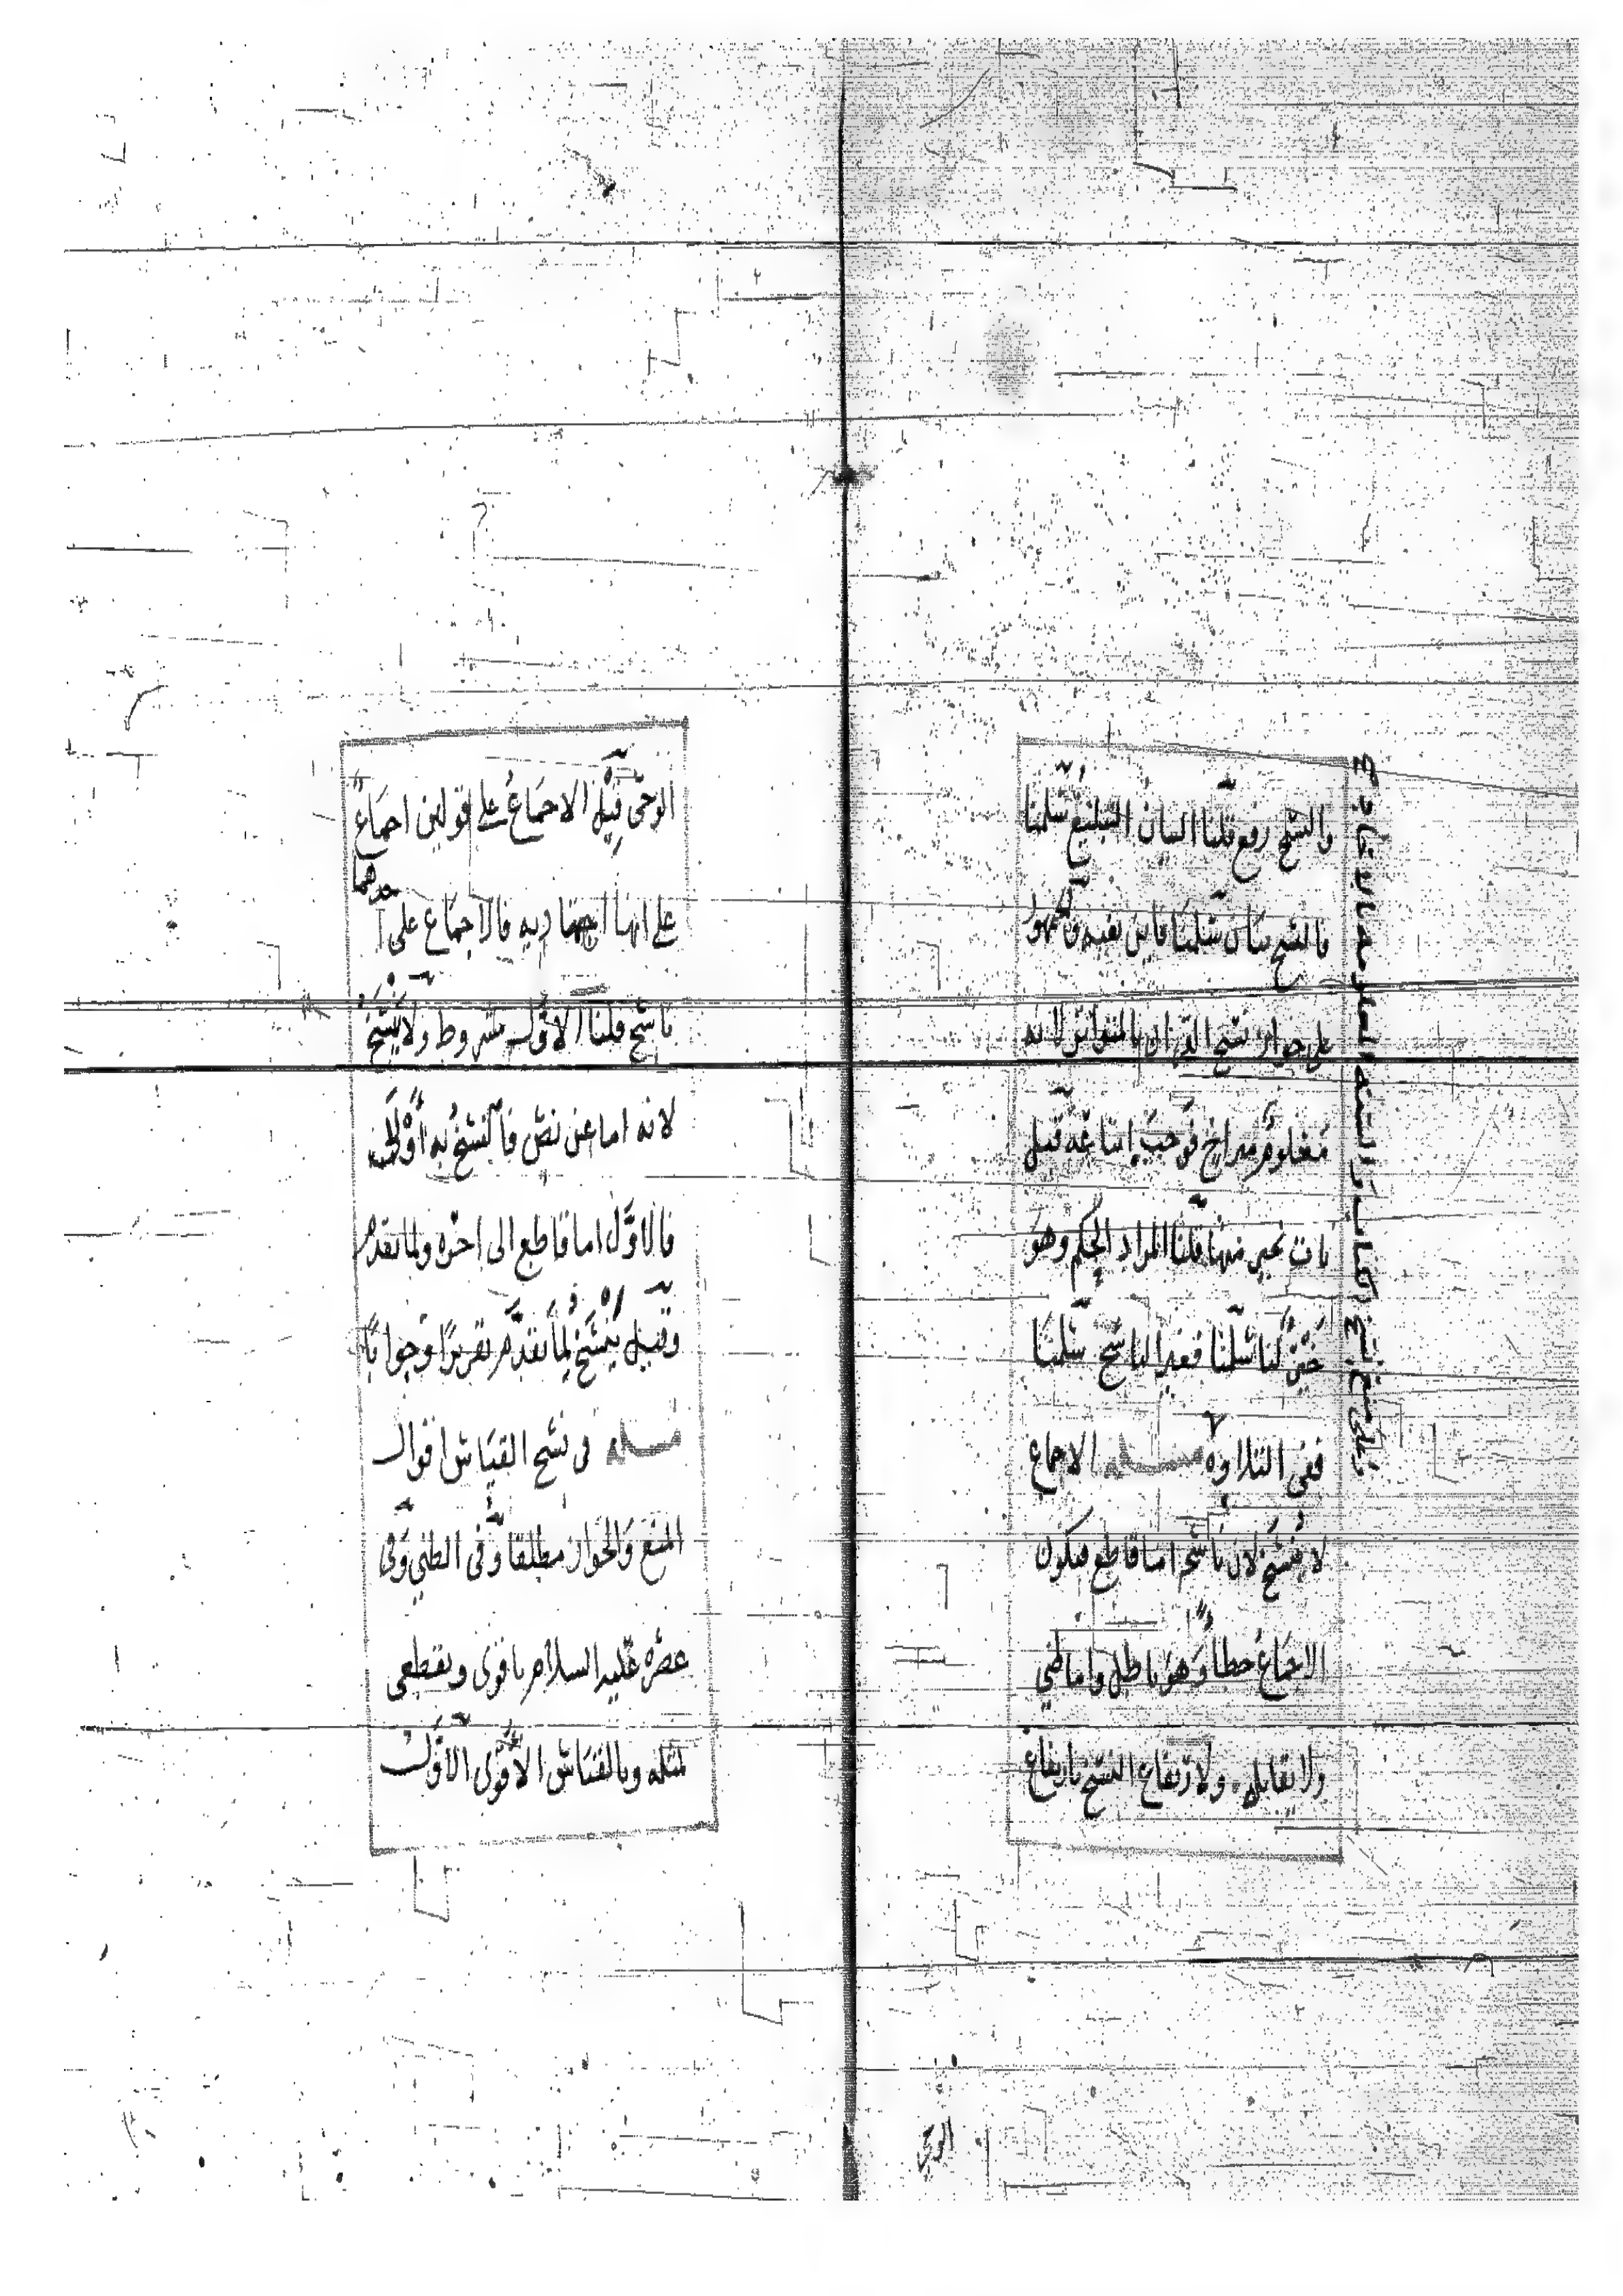 والنسخ رفع قلنا البيان التبليغ سلمنا
فالنسخ بيان سلمنا فاين نفيه والجمهور
على جواز نسخ القرآن بالمتواتر لانه
معلوم متراخ فوجب اتباعه قيل
نات بخير منها قلنا المراد الحكم وهو
خير لنا سلمنا فغير الناسخ سلمنا
ففي التلاوة مسئلة الاجماع
لا ينسخ لان ناسخه اما قاطع فيكون
الاجماع خطا وهو باطل واما ظني
ولا يقابله ولارتفاع النسخ بارتفاع
الوحي
الوحي قيل الاجماع على قولين اجماع
على انها اجتهادية فالاجماع على احدهما
ناسخ قلنا الاول مشروط ولا ينسخ
لانه اما عن نص فالنسخ به اولى
فالاول اما قاطع الى اخره ولما تقدم
وقيل ينسخ لما تقدم تقريرا وجوابا
مسئلة في نسخ القياس اقوال
المنع والجواز مطلقا وفي الظني وفي
عصره عليه السلام باقوى وبقطعي
لمثله وبالقياس الاقوى الاول